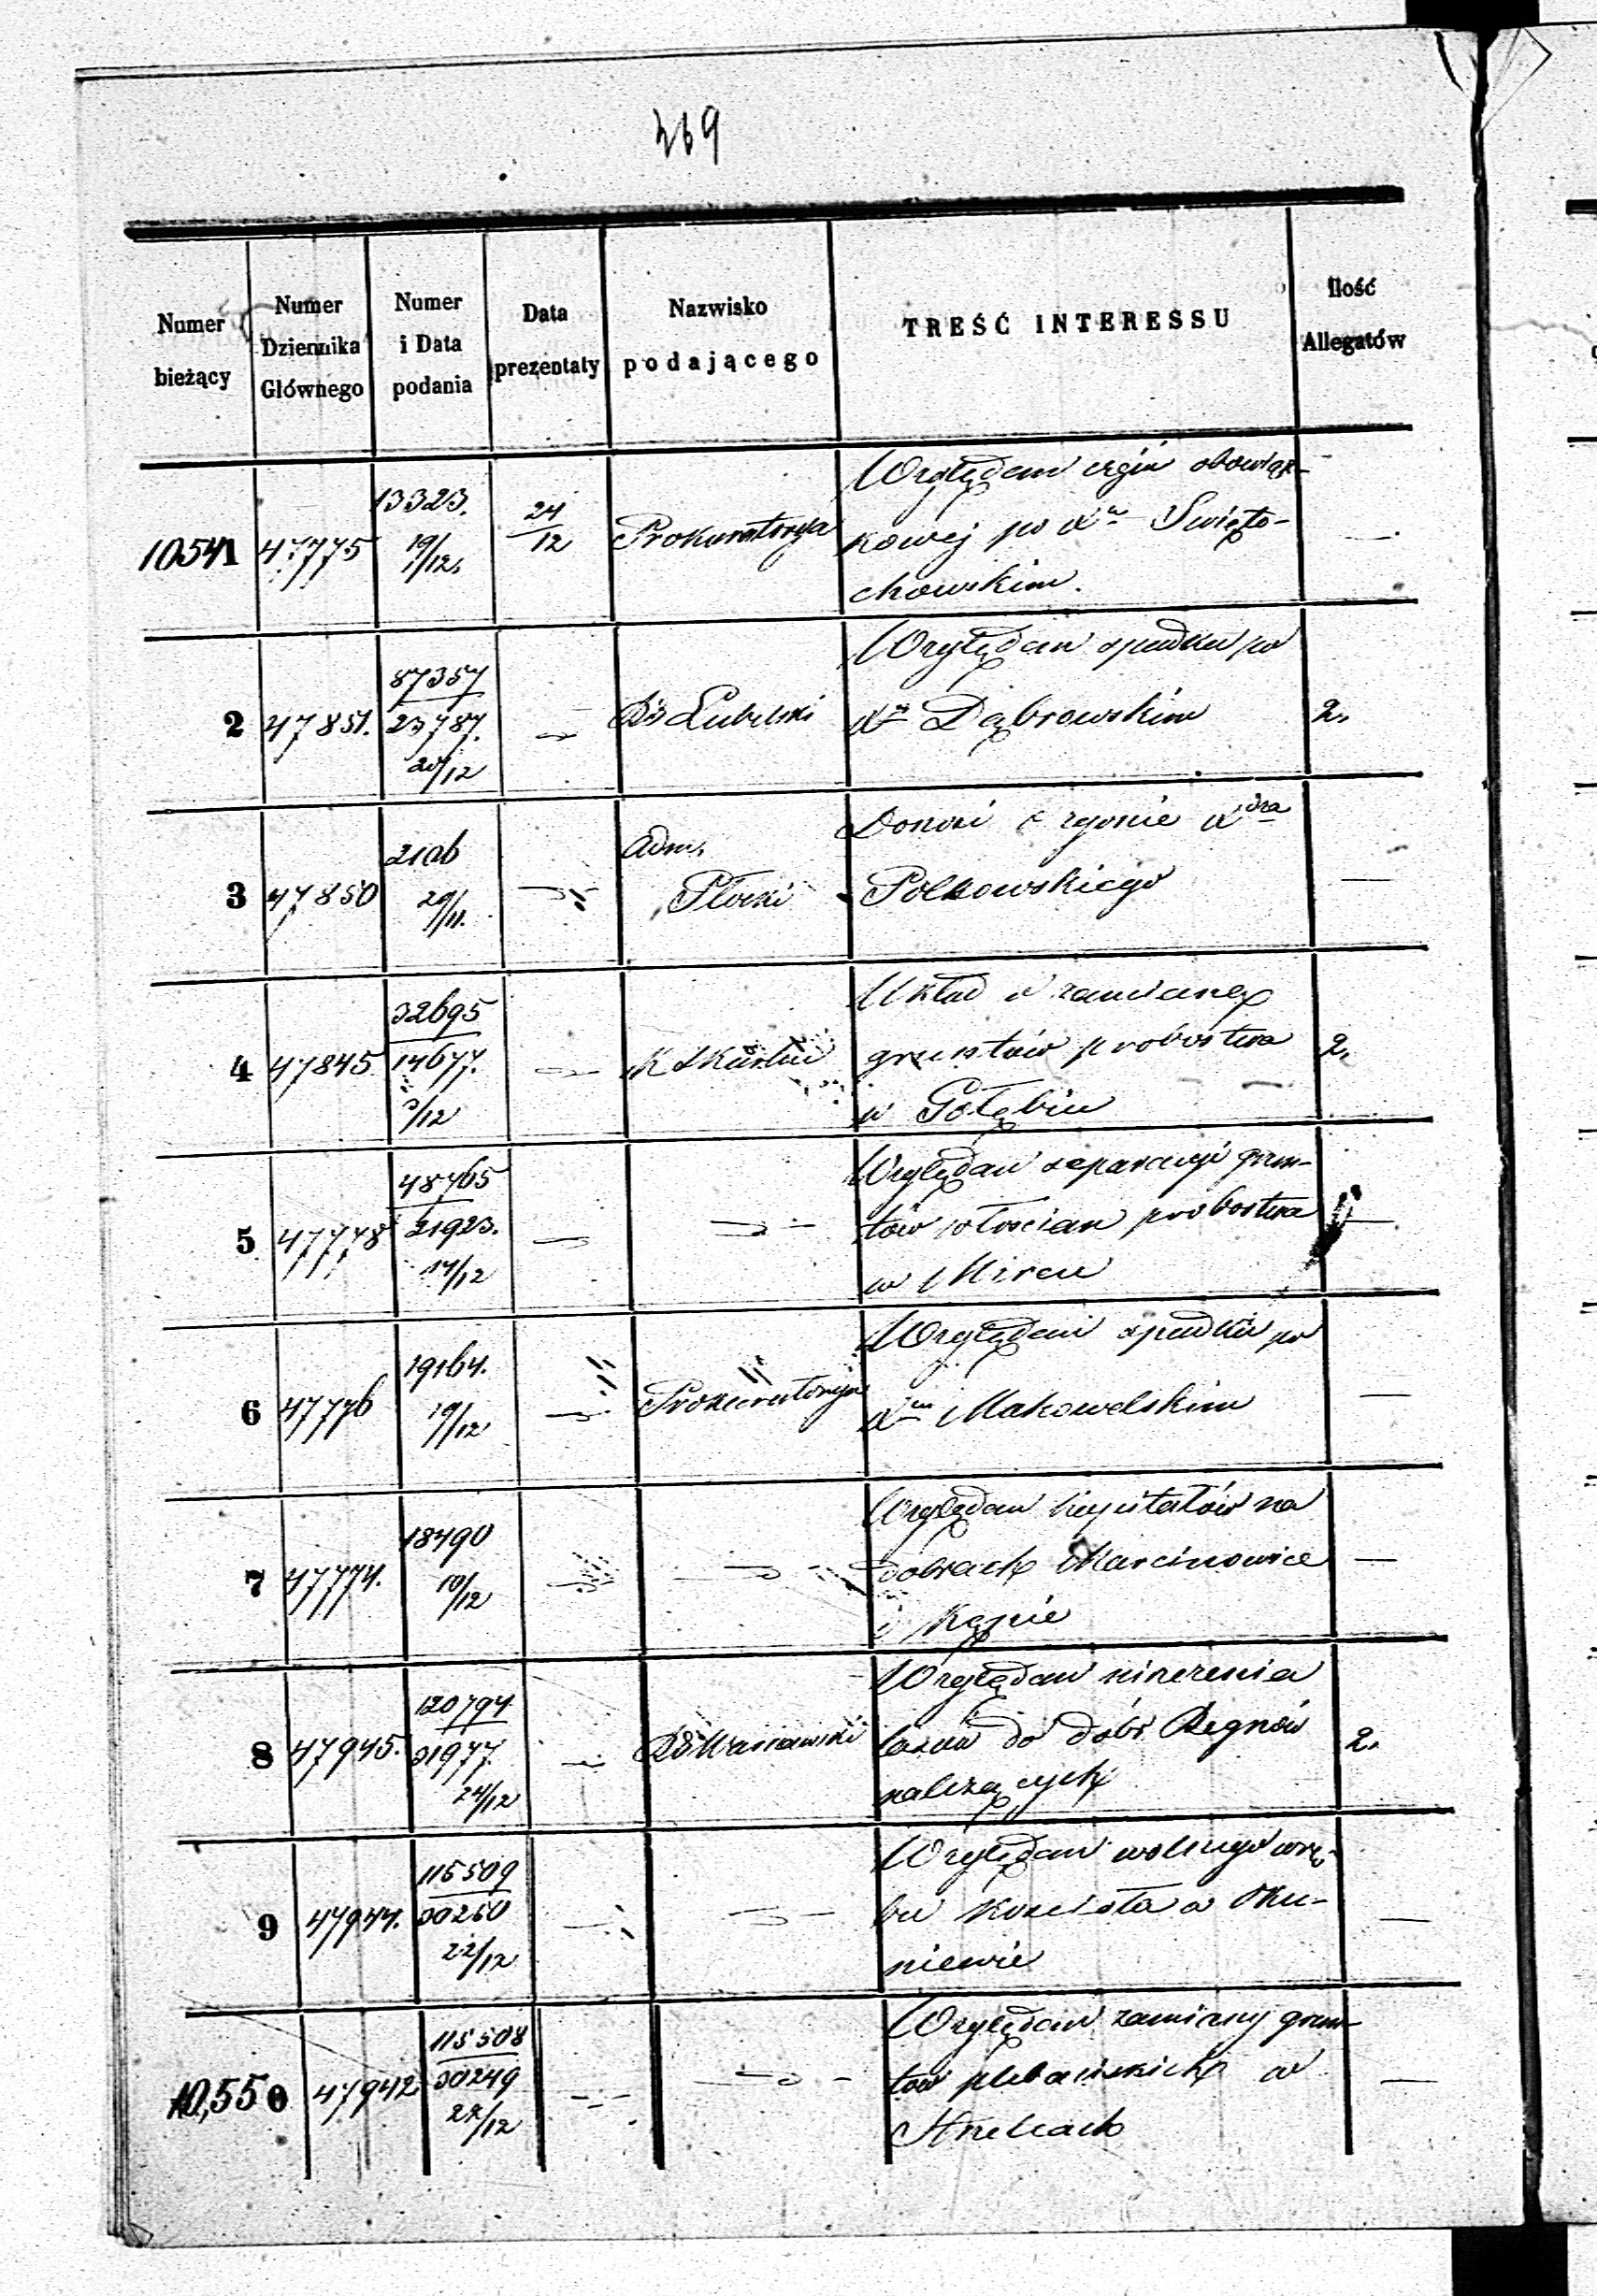 269
Numer bieżący
Numer Dziennika Głównego
Numer i Data podania
Data prezentaty
Nazwisko podającego
TREŚĆ INTERESSU
Ilość Allegatów
10541
47775
13323.
19/12.
24/12
Prokuratorya
Względem obowiąz-
kowej po Xu Święto-
chowskim.
—
2
47851.
87357
23787.
20/12
Lubelski
Względem spadku po
Xu Dąbrowskim
2.
3
47850
2106
29/11.
Adm.
Płocki
Donosi o zgonie Xdza
Polkowskiego
—
4
47845
32695
14677.
3/12
Układ o zamianę
gruntów probostwa
w Gołębiu
2.
5
47778
48765
21923.
14/12
Względem separacyi grun-
tów włościan probostwa
w Mircu
—
6
47776
19164.
19/12
Prokuratorya
Względem spadku po
Xm Makowelskim
—
7
47774.
18490
10/12
Względem kapitałów na
dobrach Marcinowice
i Kępie
—
8
47945.
120794
31977.
24/12
Warszawski
Względem niszczenia
lasów do dóbr Regnów
należących
2.
9
47944.
115509
30260
22/12
Względem wolnego wrę-
bu Kościoła w Oku-
niewie
—
10,550
47942
115508
30249
22/12
Względem zamiany grun-
tów plebańskich w
Strzelcach
—